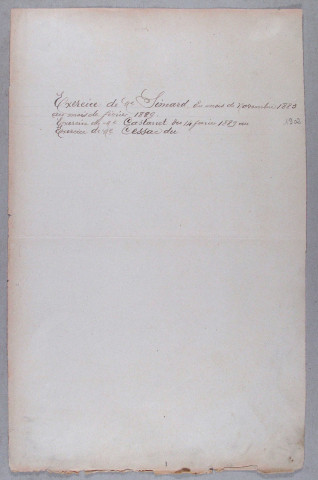 Exercice de Mᵉ Simard du mois de novembre 1883
au mois de février 1889
Exercice de Mᵉ Castanet du 14 février 1889 au
Exercice de Mᵉ Cessac du